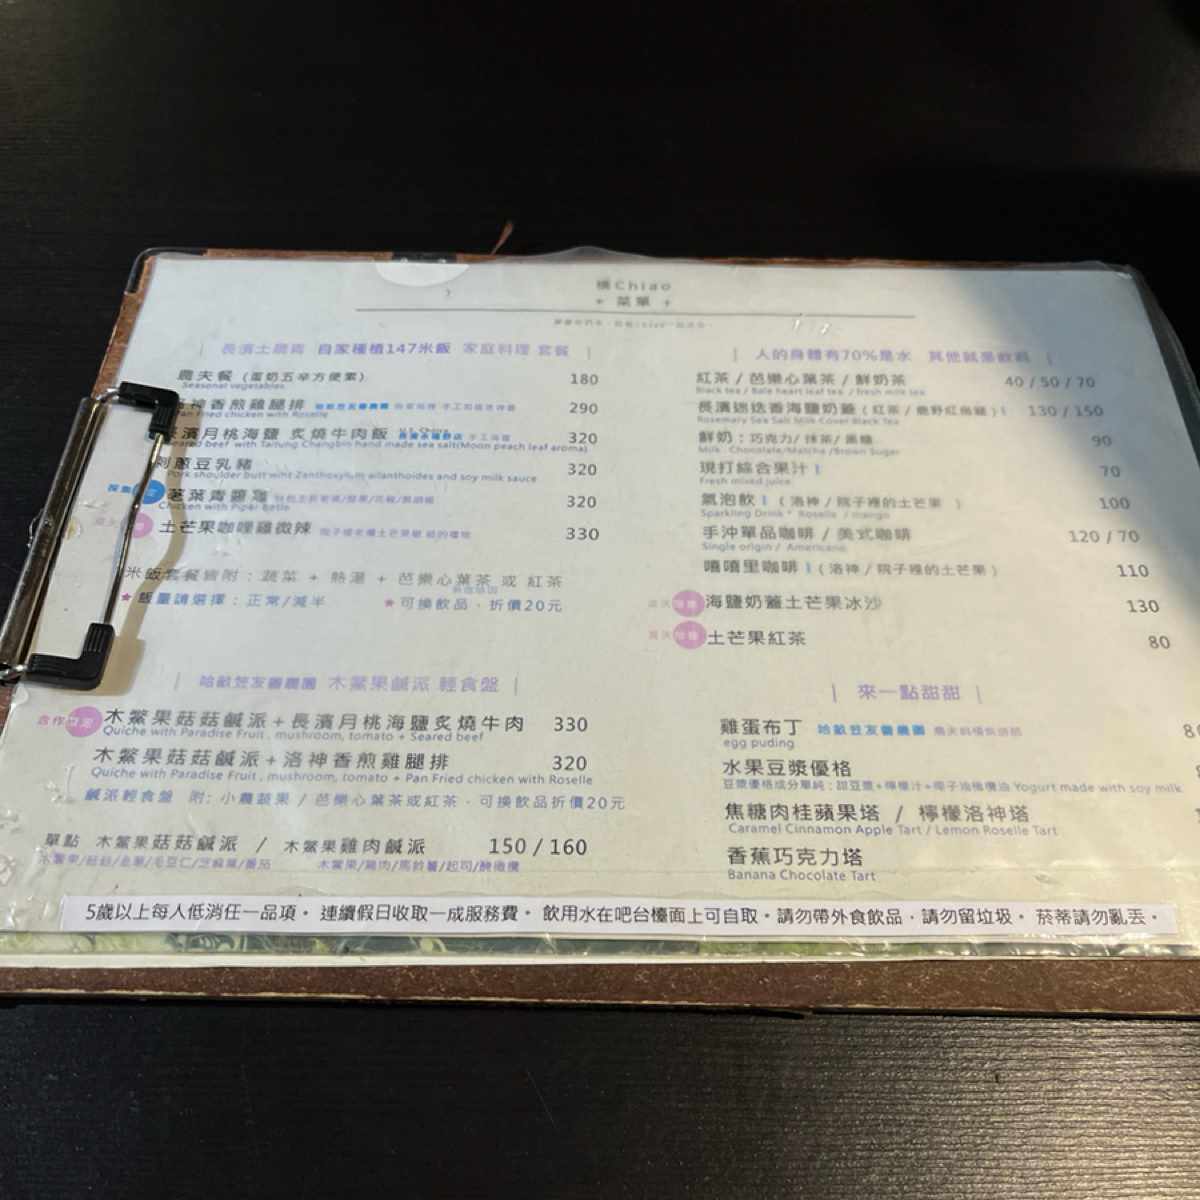 橋Chiao
+ 菜單 +
| 長濱土農青 自家種植147米飯 家庭料理 套餐 |
農夫餐 (蛋奶五辛方便素) 180
Seasonal vegetables
洛神香煎雞腿排 290
Pan Fried chicken with Roselle
長濱月桃海鹽 炙燒牛肉飯 U.S. Choice 手工海鹽 320
Seared beef with Taitung Changbin hand made sea salt(Moon peach leaf aroma)
刺蔥豆乳豬 320
Pork shoulder butt wiht Zanthoxylum ailanthoides and soy milk sauce
荖葉青醬雞 320
Chicken with Piper betle
土芒果咖哩雞微辣 330
米飯套餐皆附 : 蔬菜 + 熱湯 + 芭樂心葉茶 或 紅茶
無咖啡因
★飯量請選擇 : 正常/減半 ★可換飲品 . 折價20元
| 哈畝笠友善農園 木鱉果鹹派 輕食盤 |
合作限定 木鱉果菇菇鹹派+長濱月桃海鹽炙燒牛肉 330
Quiche with Paradise Fruit , mushroom, tomato + Seared beef
木鱉果菇菇鹹派+洛神香煎雞腿排 320
Quiche with Paradise Fruit , mushroom, tomato + Pan Fried chicken with Roselle
鹹派輕食盤 附: 小農蔬果 / 芭樂心葉茶或紅茶 . 可換飲品折價20元
單點 木鱉果菇菇鹹派 / 木鱉果雞肉鹹派 150 / 160
木鱉果/菇菇/韭蔥/毛豆仁/芝麻葉/番茄 木鱉果/雞肉/馬鈴薯/起司/醃橄欖
| 人的身體有70%是水 其他就是飲料 |
紅茶 / 芭樂心葉茶 / 鮮奶茶 40 / 50 / 70
Black tea / Bale heart leaf tea / fresh milk tea
長濱迷迭香海鹽奶蓋 ( 紅茶 / 鹿野紅烏龍 ) 130 / 150
Rosemary Sea Salt Milk Cover Black Tea
鮮奶 : 巧克力/ 抹茶/ 黑糖 90
Milk : Chocolate/Matcha /Brown Sugar
現打綜合果汁 70
Fresh mixed juice
氣泡飲 ( 洛神 / 院子裡的土芒果 ) 100
Sparkling Drink* Roselle / mango
手沖單品咖啡 / 美式咖啡 120 / 70
Single origin / Americano
嘻嘻里咖啡 ( 洛神 / 院子裡的土芒果 ) 110
海鹽奶蓋土芒果冰沙 130
土芒果紅茶 80
| 來一點甜甜 |
雞蛋布丁 哈畝笠友善農園
egg puding
水果豆漿優格
豆漿優格成分單純 : 甜豆漿+檸檬汁+椰子油 Yogurt made with soy milk
焦糖肉桂蘋果塔 / 檸檬洛神塔
Caramel Cinnamon Apple Tart / Lemon Roselle Tart
香蕉巧克力塔
Banana Chocolate Tart
5歲以上每人低消任一品項。連續假日收取一成服務費。飲用水在吧台檯面上可自取。請勿帶外食飲品 . 請勿留垃圾。 菸蒂請勿亂丟。